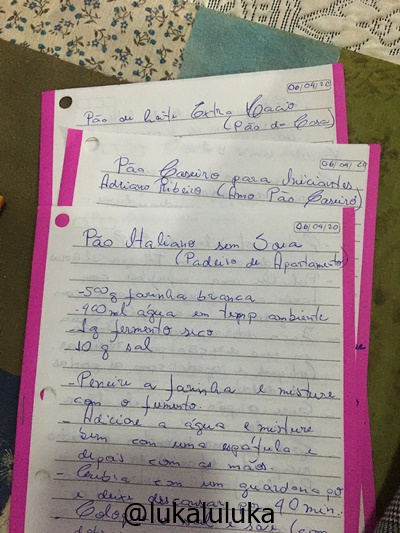 06/04/20
Pão de Leite Extra Macio
(Pão da Casa)
06/04/20
Pão Caseiro para Iniciantes
Adriano Ribeiro (Amo Pão Caseiro)
06/04/20
Pão Italiano sem Sova
(Padeiro de Apartamento)
- 500g farinha branca
- 400ml água em temp ambiente
- 1g fermento seco
- 10g sal
- Peneire a farinha e misture
com o fermento.
- Adicione a água e misture
bem com uma espátula e
depois com as mãos.
- Cubra com um guardanapo
e deixe descansar por 40 min.
@lukaluluka